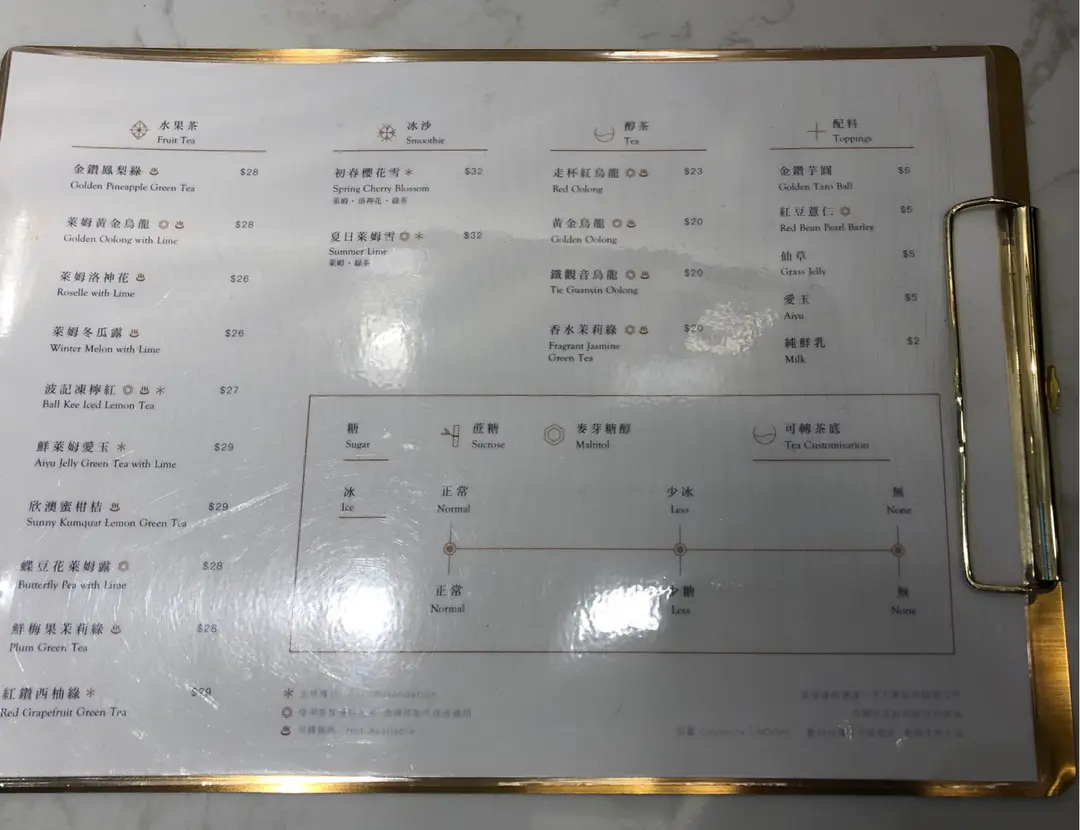 水果茶
Fruit Tea
金鑽鳳梨綠 $28
Golden Pineapple Green Tea
萊姆黃金烏龍 $28
Golden Oolong with Lime
萊姆洛神花 $26
Roselle with Lime
萊姆冬瓜露 $26
Winter Melon with Lime
波記凍檸紅 $27
Ball Kee Iced Lemon Tea
鮮萊姆愛玉 $29
Aiyu Jelly Green Tea with Lime
欣澳蜜柑桔 $29
Sunny Kumquat Lemon Green Tea
蝶豆花萊姆露 $28
Butterfly Pea with Lime
鮮梅果茉莉綠 $28
Plum Green Tea
紅鑽西柚綠 $29
Red Grapefruit Green Tea
冰沙
Smoothie
初春櫻花雪 $32
Spring Cherry Blossom
萊姆・洛神花・綠茶
夏日萊姆雪 $32
Summer Lime
萊姆・綠茶
醇茶
Tea
走杯紅烏龍 $23
Red Oolong
黃金烏龍 $20
Golden Oolong
鐵觀音烏龍 $20
Tie Guanyin Oolong
香水茉莉綠 $20
Fragrant Jasmine
Green Tea
配料
Toppings
金鑽芋圓 $5
Golden Taro Ball
紅豆薏仁 $5
Red Bean Pearl Barley
仙草 $5
Grass Jelly
愛玉 $5
Aiyu
純鮮乳 $2
Milk
糖 蔗糖 麥芽糖醇 可轉茶底
Sugar Sucrose Maltitol Tea Customisation
冰 正常 少冰 無
Ice Normal Less None
正常 少糖 無
Normal Less None
Hot Available
Capacity